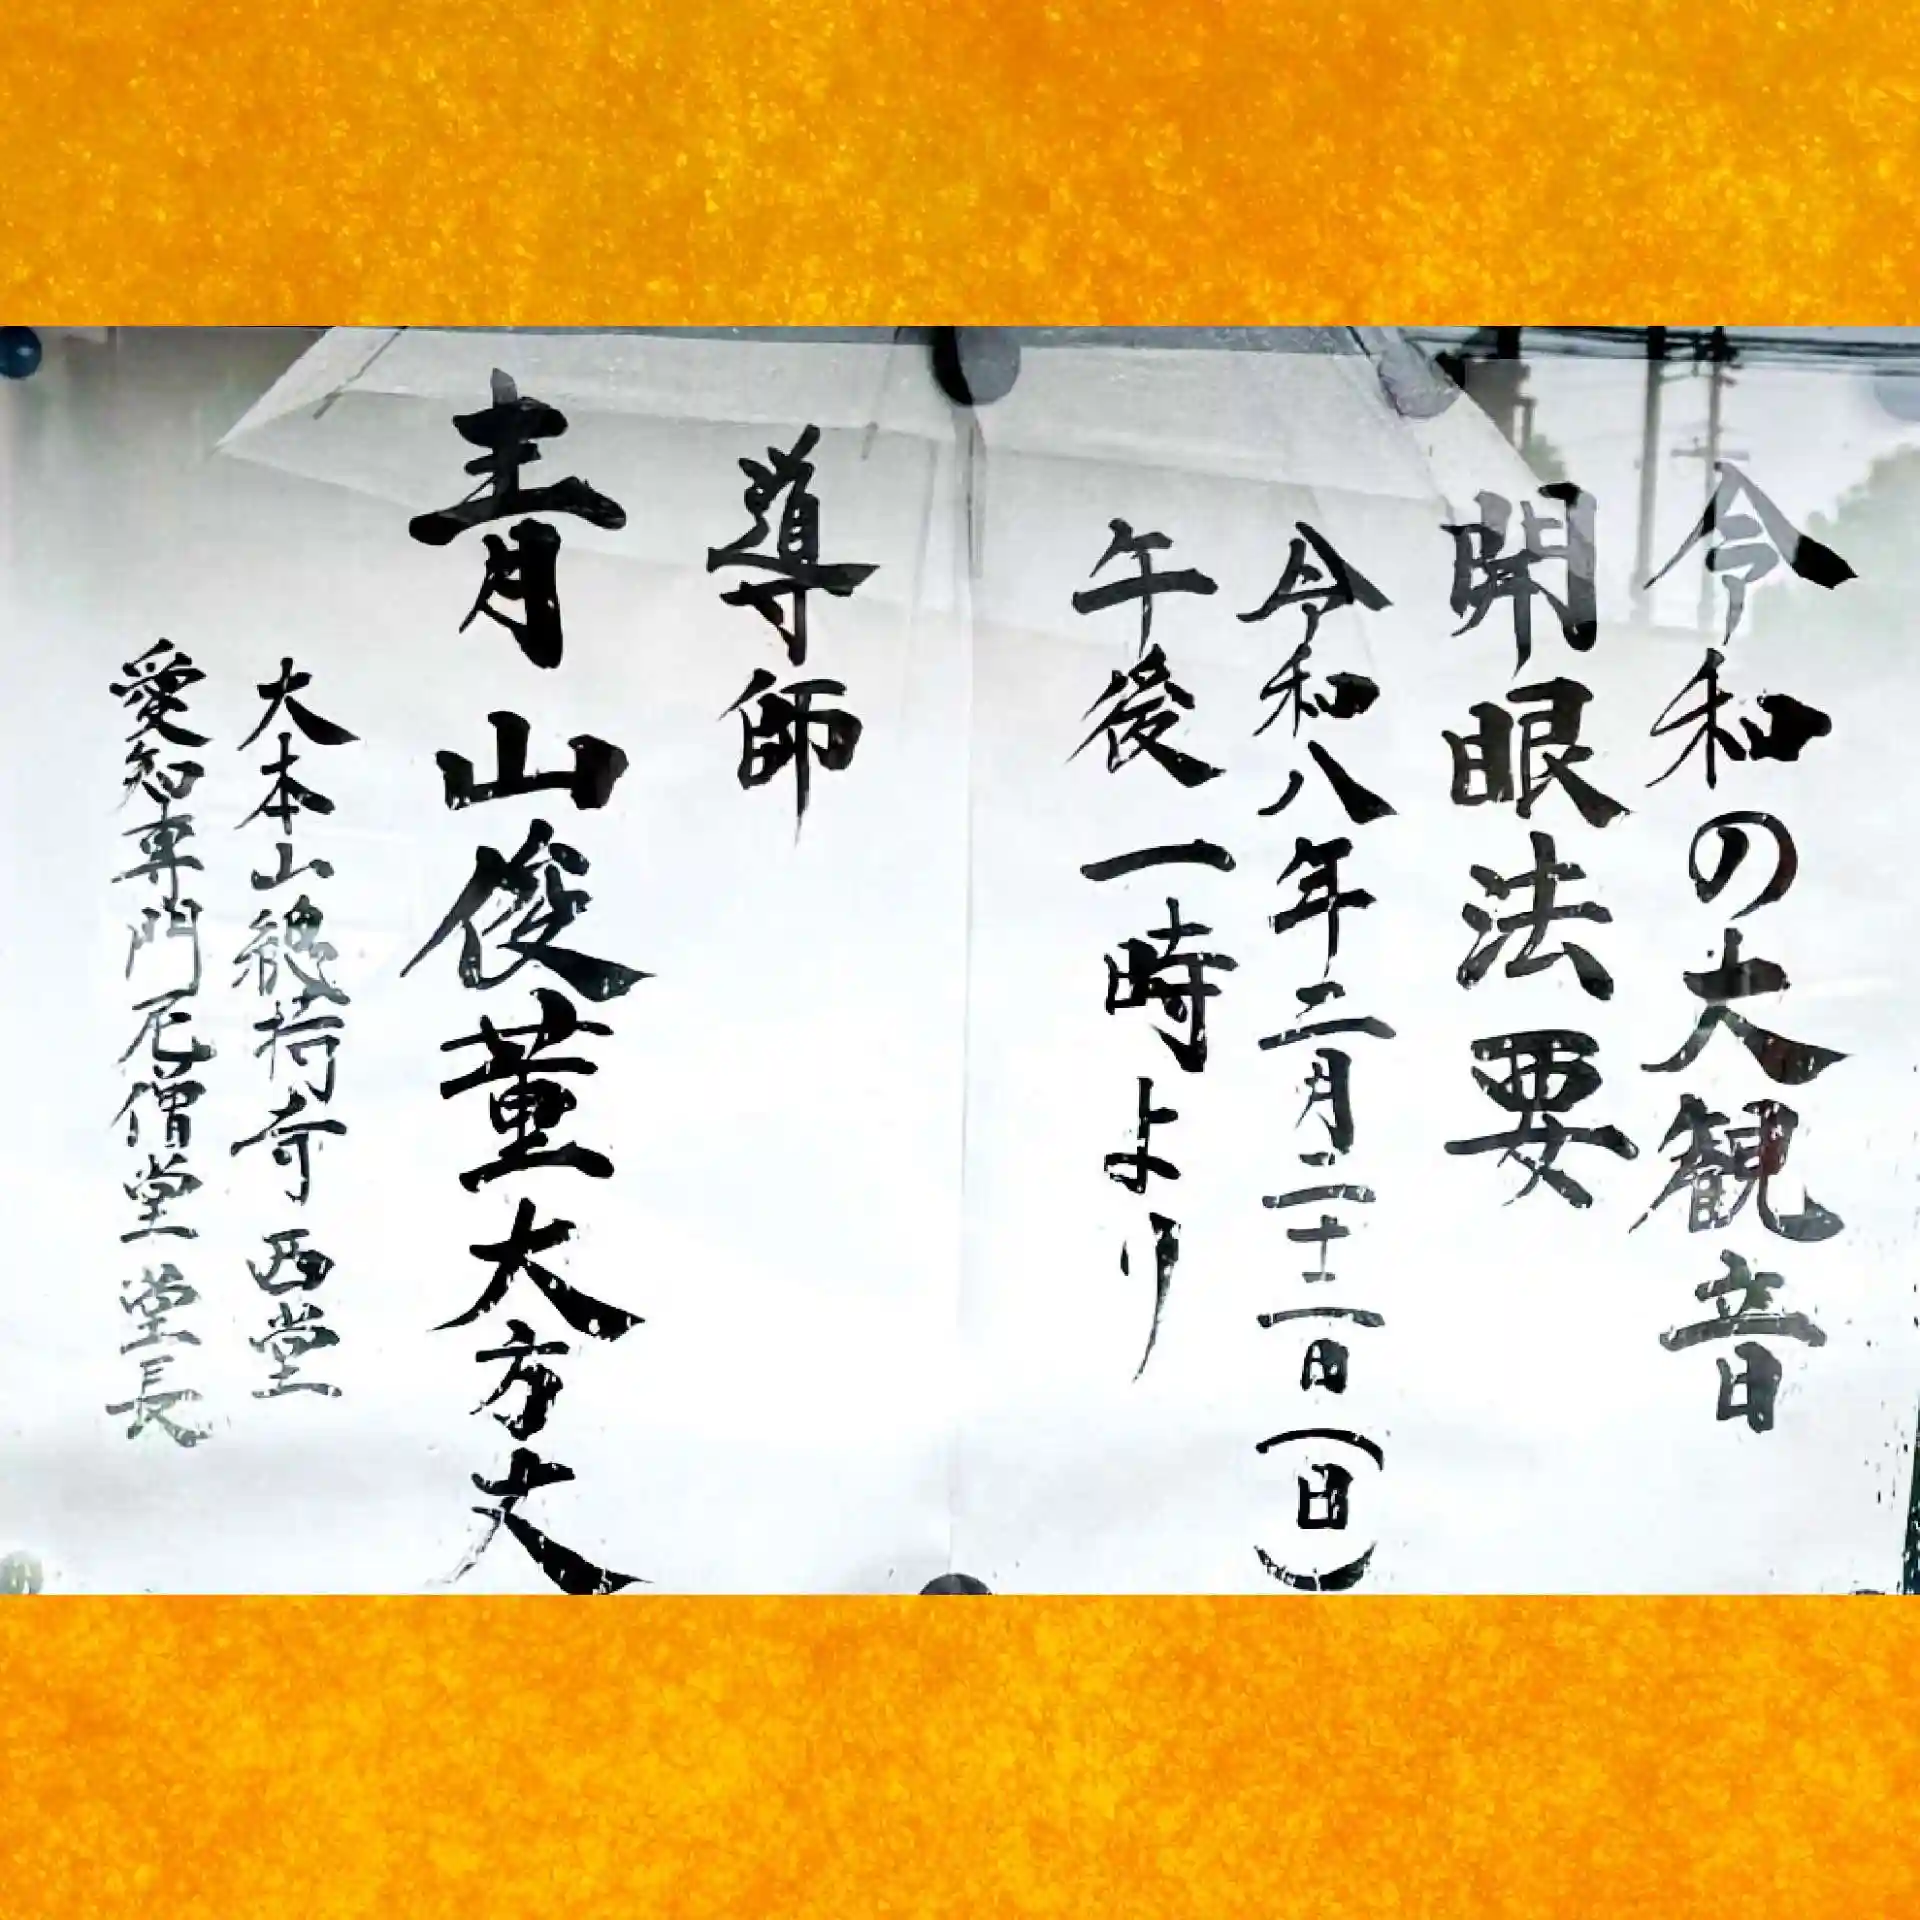 令和の大観音
開眼法要
令和八年二月二十二日(日)
午後一時より
導師
青山俊董大方丈
大本山総持寺西堂
愛知専門尼僧堂堂長